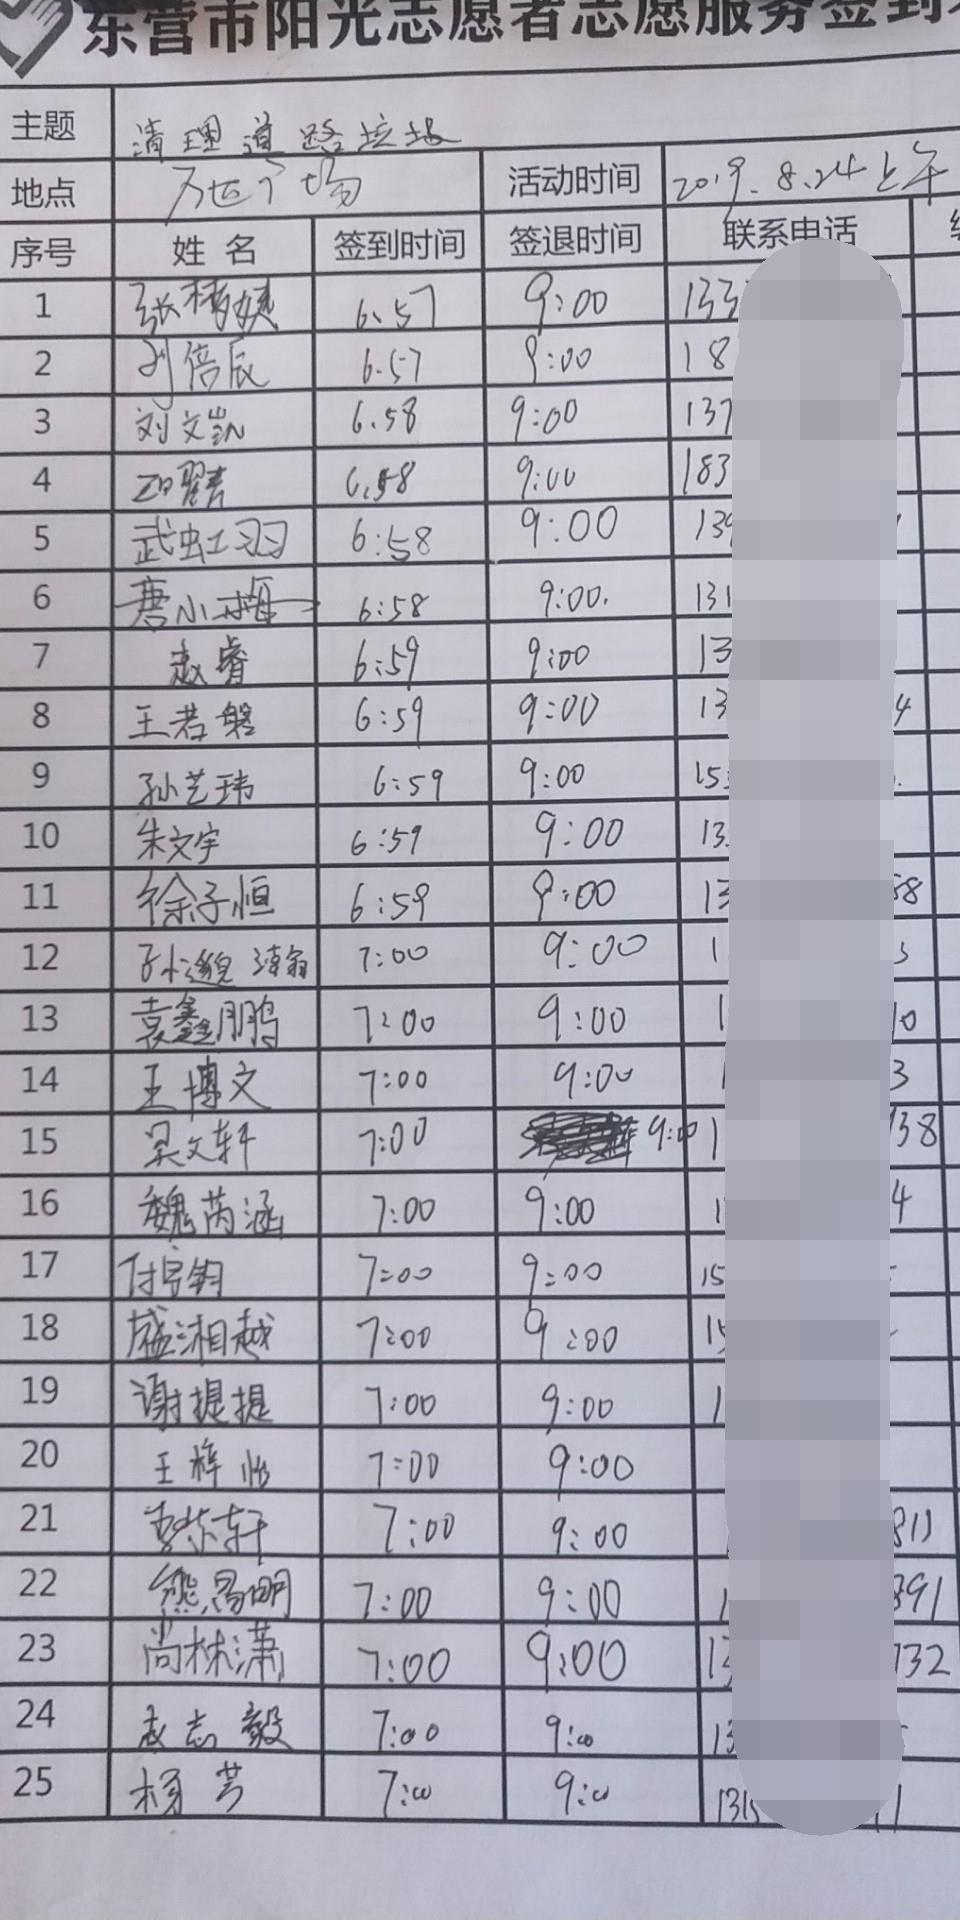 东营市阳光志愿者志愿服务签到
主题 清理道路垃圾
地点 广场 活动时间 2019.8.24上午
序号 姓名 签到时间 签退时间 联系电话
1 张 6.57 9:00 133
2 刘倍辰 6.57 9:00 18
3 刘文凯 6.58 9:00 137
4 6.58 9:00 183
5 武虹羽 6:58 9:00 139
6 唐小梅 6:58 9:00. 131
7 赵睿 6:59 9:00 13
8 王若磐 6:59 9:00 13 4
9 孙艺玮 6:59 9:00 153
10 朱文宇 6:59 9:00 13
11 徐子恒 6:59 9:00 13 58
12 孙邈 7:00 9:00 1 3
13 袁鑫鹏 7:00 9:00 1 10
14 王博文 7:00 9:00 1 3
15 吴文轩 7:00 9:00 1 138
16 魏芮涵 7:00 9:00 1 4
17 付宇钧 7:00 9:00 15
18 盛湘越 7:00 9:00 15
19 谢提提 7:00 9:00 1
20 王梓怡 7:00 9:00
21 李紫轩 7:00 9:00 811
22 熊昌明 7:00 9:00 1 391
23 尚林潇 7:00 9:00 13 732
24 赵志毅 7:00 9:00 13
25 杨芳 7:00 9:00 1315 1